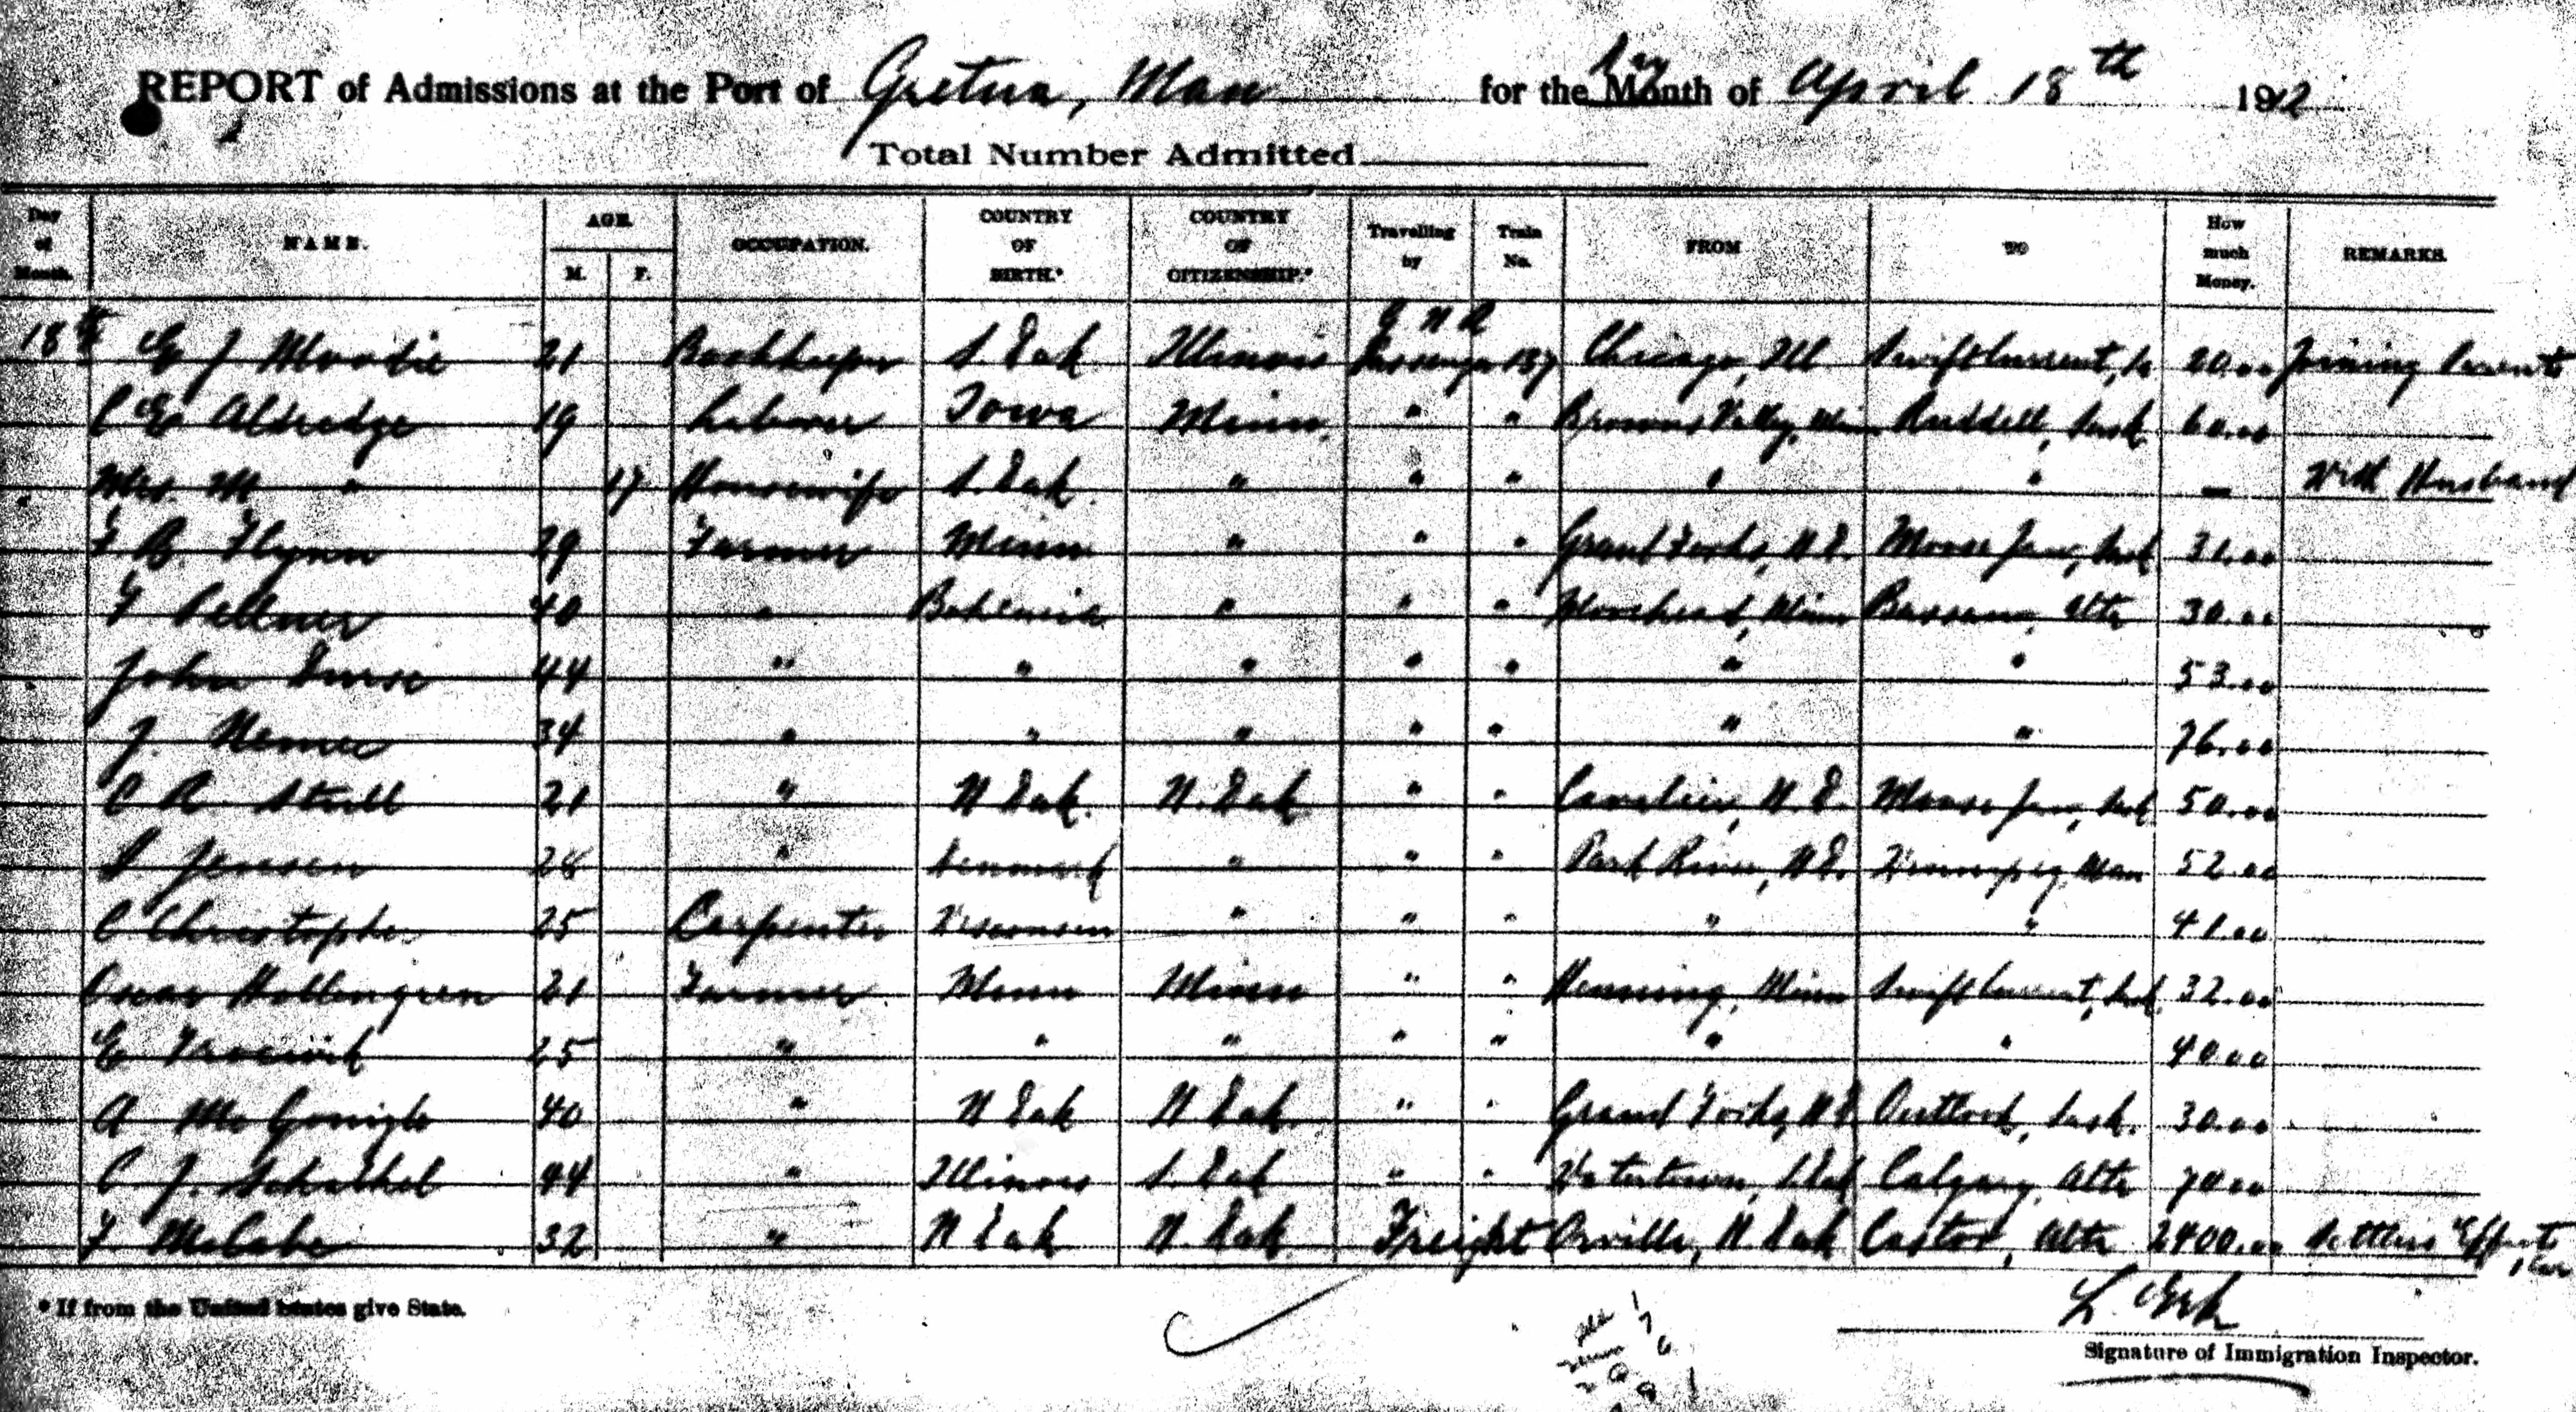 REPORT of Admissions at the Port of Gretna, Man for the Month Day of April 18th 1912
Total Number Admitted
Day of Month. NAME. AGE. M. F. OCCUPATION. COUNTRY OF BIRTH.* COUNTRY OF CITIZENSHIP.* Travelling by Train No. FROM TO How much Money. REMARKS.
G N R
18th E J Moodie 21 Bookkeeper S. Dak Illinois Passenger 137 Chicago, Ill Swift Current, 20.00 Joining Parents
C E Aldredge 19 Laborer Iowa Minn. " " Browns Valley, Minn Ruddell, Sask 60.00
Mrs. M " 17 Housewife S. Dak. " " " " " — With Husband
F B. Flynn 29 Farmer Minn " " " Grand Forks, N D. Moose Jaw, Sask 31.00
F 40 " Bohemia " " " Moorehead, Minn Bassano, Alta 30.00
John 44 " " " " " " " 53.00
J. Nemec 34 " " " " " " " 76.00
C R. Stull 21 " N Dak. N. Dak " " Cavalier, N. D. Moose Jaw, Sask 50.00
Jensen 28 " Denmark " " " Park River, N D. Winnipeg, Man 52.00
C Christopher 25 Carpenter Wisconsin " " " " " 41.00
Oscar Hollengren 21 Farmer Minn Minn " " Henning, Minn Swift Current, Sask. 32.00
E 25 " " " " " " " 40.00
A McGonigle 40 " N Dak N Dak. " " Grand Forks, N D Outlook, Sask. 30.00
C J. 44 " Illinois S. Dak " " Watertown, S Dak Calgary, Alta 70.00
F McCabe 32 " N Dak N. Dak Freight Orville, N. Dak Castor, Alta 2400.00 Settlers Effects, 1 Car
* If from the United States give State.
L.
Signature of Immigration Inspector.